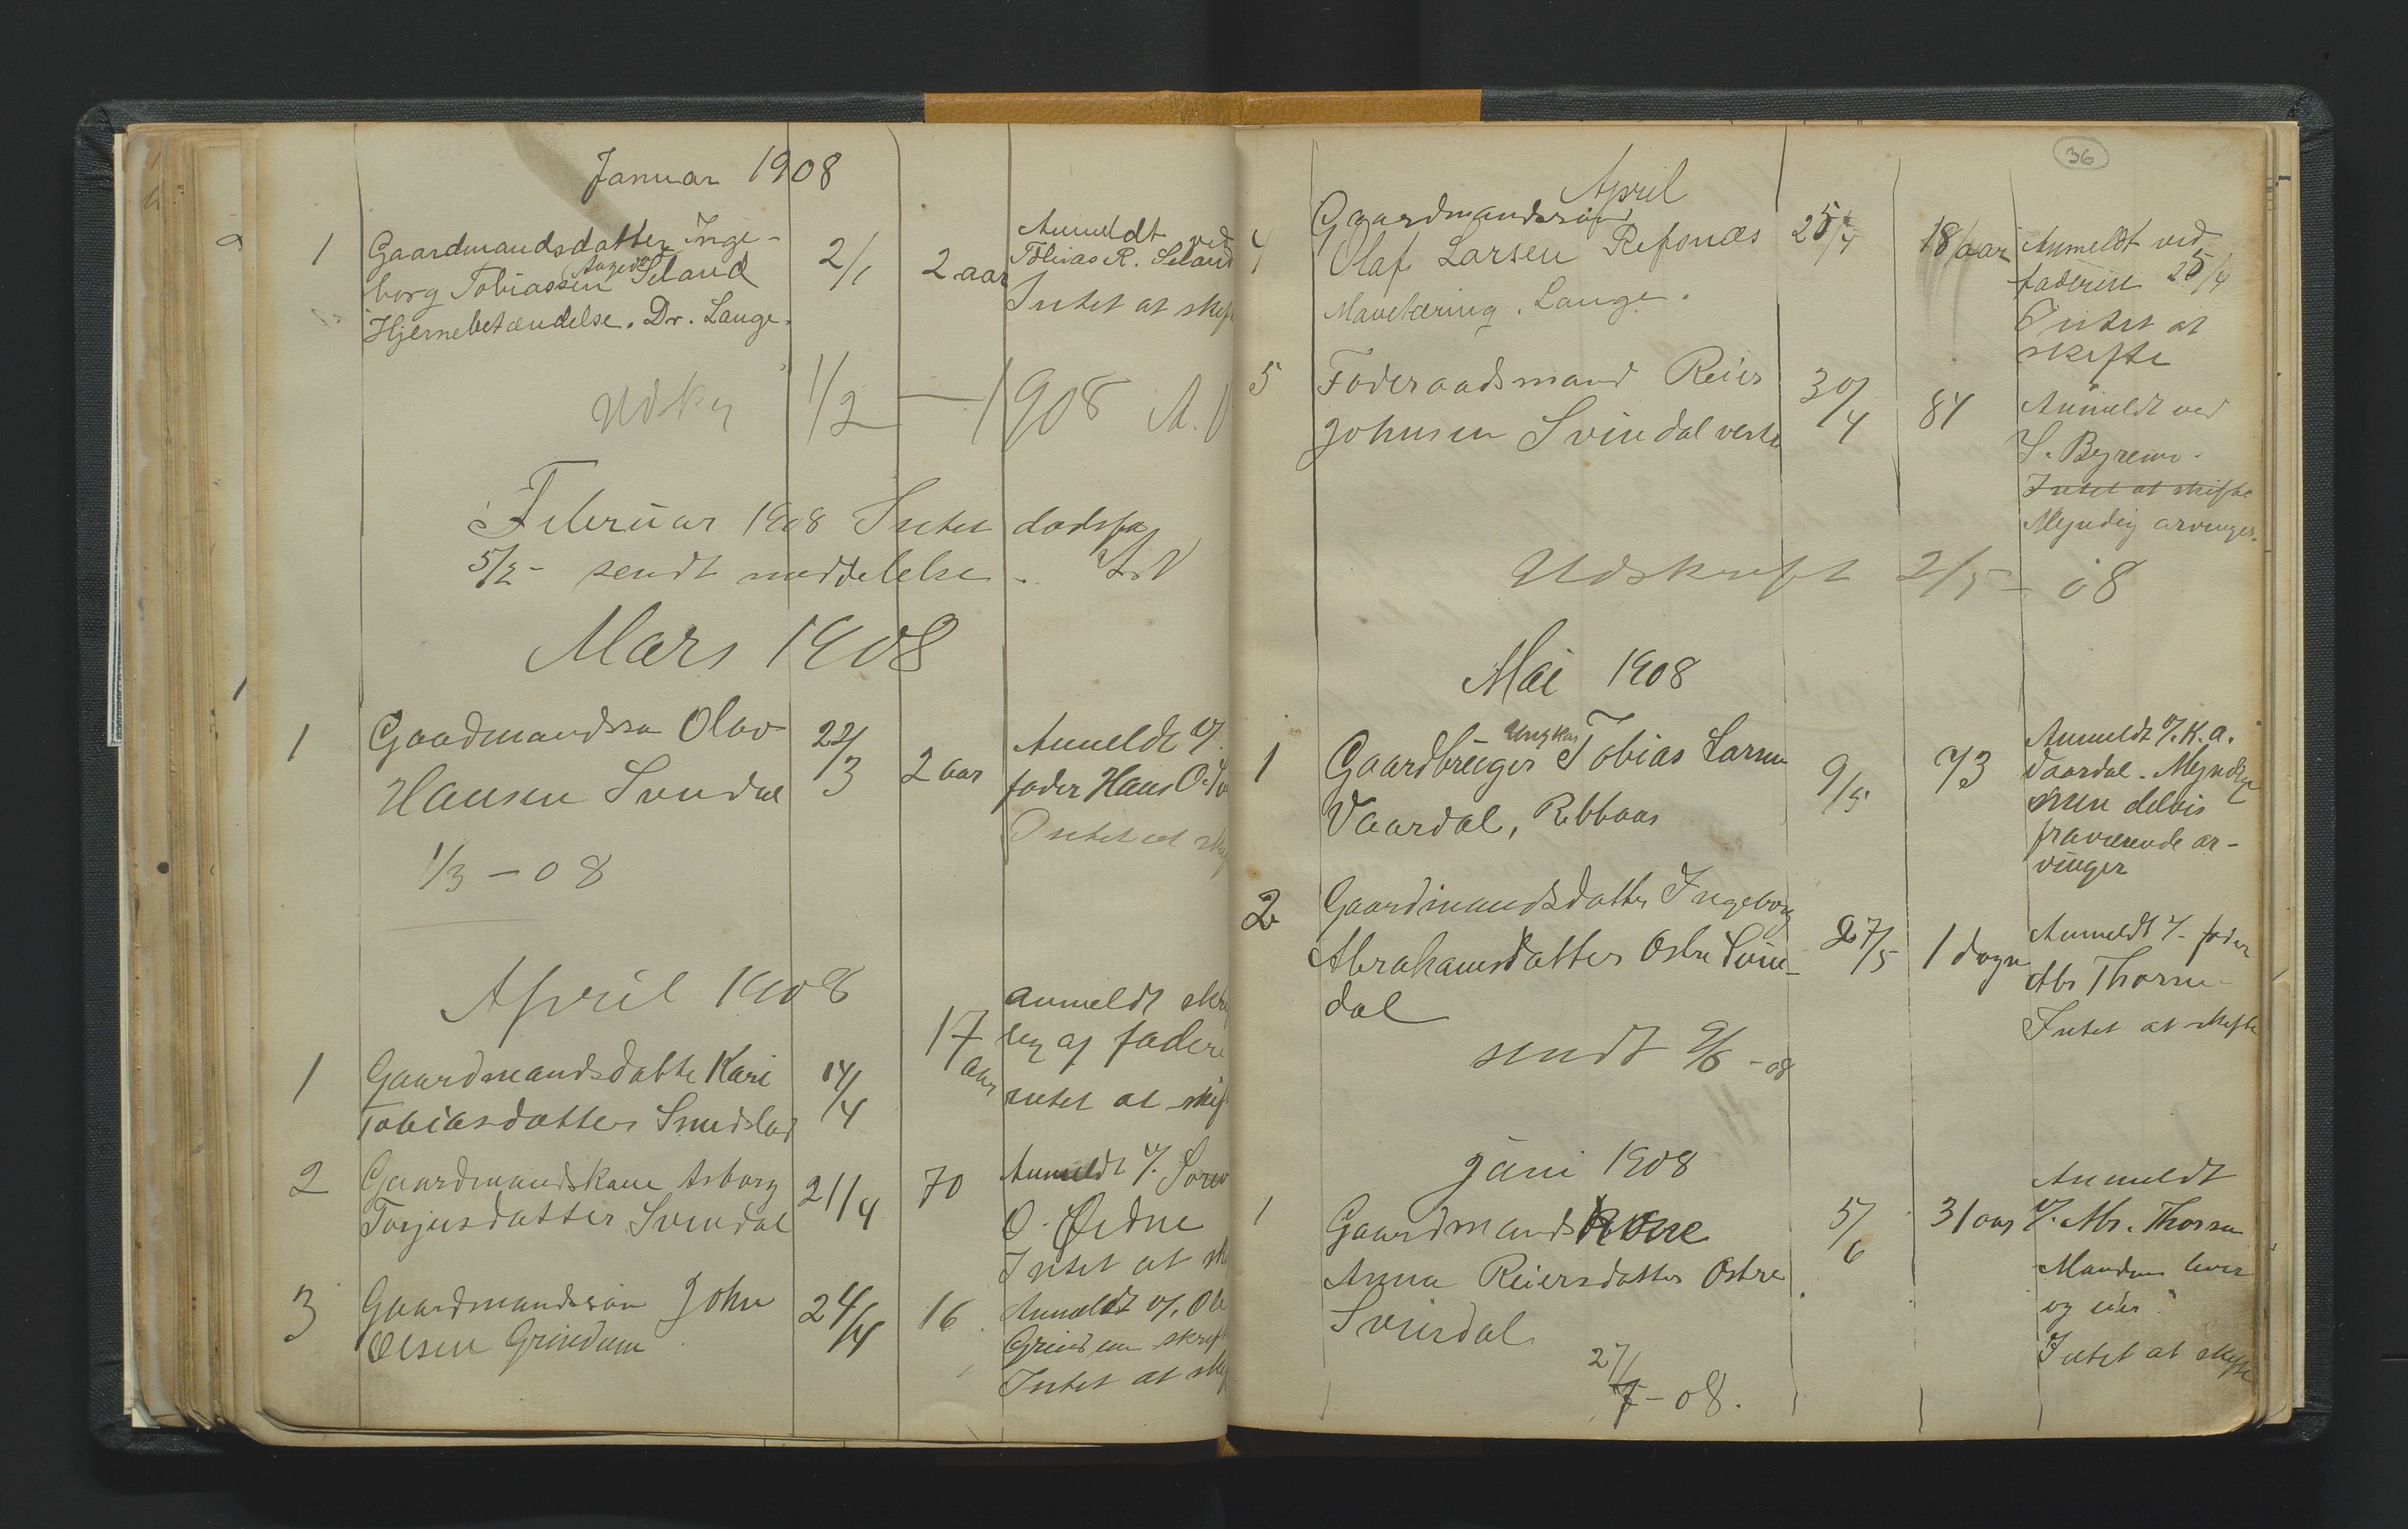 Januar 1908
1 Gaardmandsdatter Inge- 2/1 2 aar Anmeldt ved
borg Tobiassen Seland Tobias R. Seland
Hjernebetændelse. Dr. Lange. Intet at skif
Udkr 1/2 — 1908 A.
Februar 1908 Intet dødsfa
5/2 - sendt meddelelse.
Mars 1908
1 Gaadmandssø Olav 22/3 2 aar Anmeldt v/.
Hansen Svindal fader Hans O.
Intet at
1/3 - 08
April 1908
1 Gaardmandsdatte Kari 14/4 17 aar anmeldt skr
Tobiasdatter lig af fader
intet at skif
2 Gaardmandskone Asborg 21/4 70 Anmeldt v/.
Torjusdatter Svindal O. Øidne
Intet at sk
3 Gaardmandssøn John 24/4 16 Anmeldt v/. Ole
Olsen Grindem Grindem skrift
Intet at skif
36
April
4 Gaardmandssøn 25/4 18 aar Anmeldt ved
Olaf Larsen Refsnæs faderen 25/4
Mavetæring. Lange. Intet at
skifte
5 Føderaadsmand Reier 30/4 84 Anmeldt ved
Johnsen Svindal vestre S. Byremo.
Intet at skifte
Myndig arvinger.
Udskrift 2/5 - 08
Mai 1908
1 Gaardbruger Ungkar Tobias Larsen 9/5 73 Anmeldt v/. K. A.
Vaardal, Vaardal. Myndige
men delvis
fraværende ar-
vinger
2 Gaardmandsdatter Ingeborg 27/5 1 døgn Anmeldt v/. fader
Abrahamsdatter Østre Svin- Abr Thorsen
dal Intet at skifte
sendt 2/6 - 08
Juni 1908
1 Gaardmandskone 5/6 31 aar Anmeldt
Anna Reiersdatter Østre v/. Abr. Thorsen
Svindal Manden lever
og
Intet at skifte
27/7 - 08.